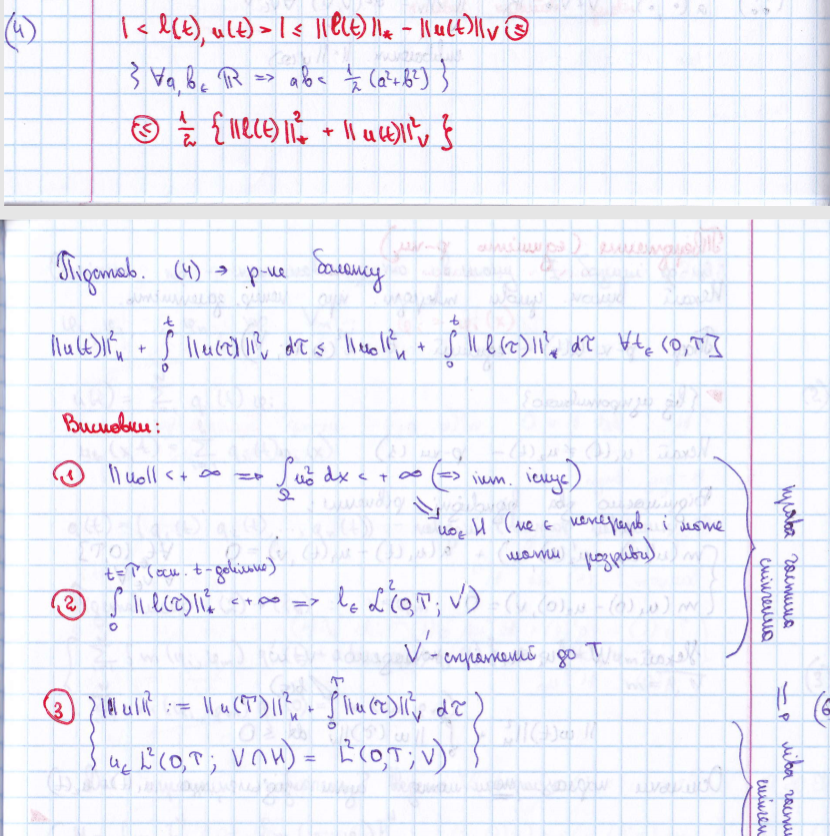 (4) | < l(t), u(t) > | ≤ ||l(t)||_* - ||u(t)||_V ≤
} ∀a,b ∈ ℝ => ab < 1/2 (a² + b²) }
≤ 1/2 { ||l(t)||²_* + ||u(t)||²_V }
Підстав. (4) → р-не балансу
||u(t)||²_H + ∫₀ᵗ ||u(τ)||²_V dτ ≤ ||u₀||²_H + ∫₀ᵗ ||l(τ)||²_* dτ ∀t ∈ (0,T]
Висновки:
1 ||u₀|| < +∞ => ∫_Ω u₀² dx < +∞ (=> інт. існує)
=> u₀ ∈ H (не є неперерв. і може
мати розриви)
t=T (оск. t-довільне)
2 ∫₀ ||l(τ)||²_* < +∞ => l ∈ L²(0,T; V')
V' - спряжений до T
права частина
скінченна
3 } |||u|||² := ||u(T)||²_H + ∫₀ᵀ ||u(τ)||²_V dτ }
} u ∈ L²(0,T; V∩H) = L²(0,T; V) }
=> ліва част
скінчен
(6